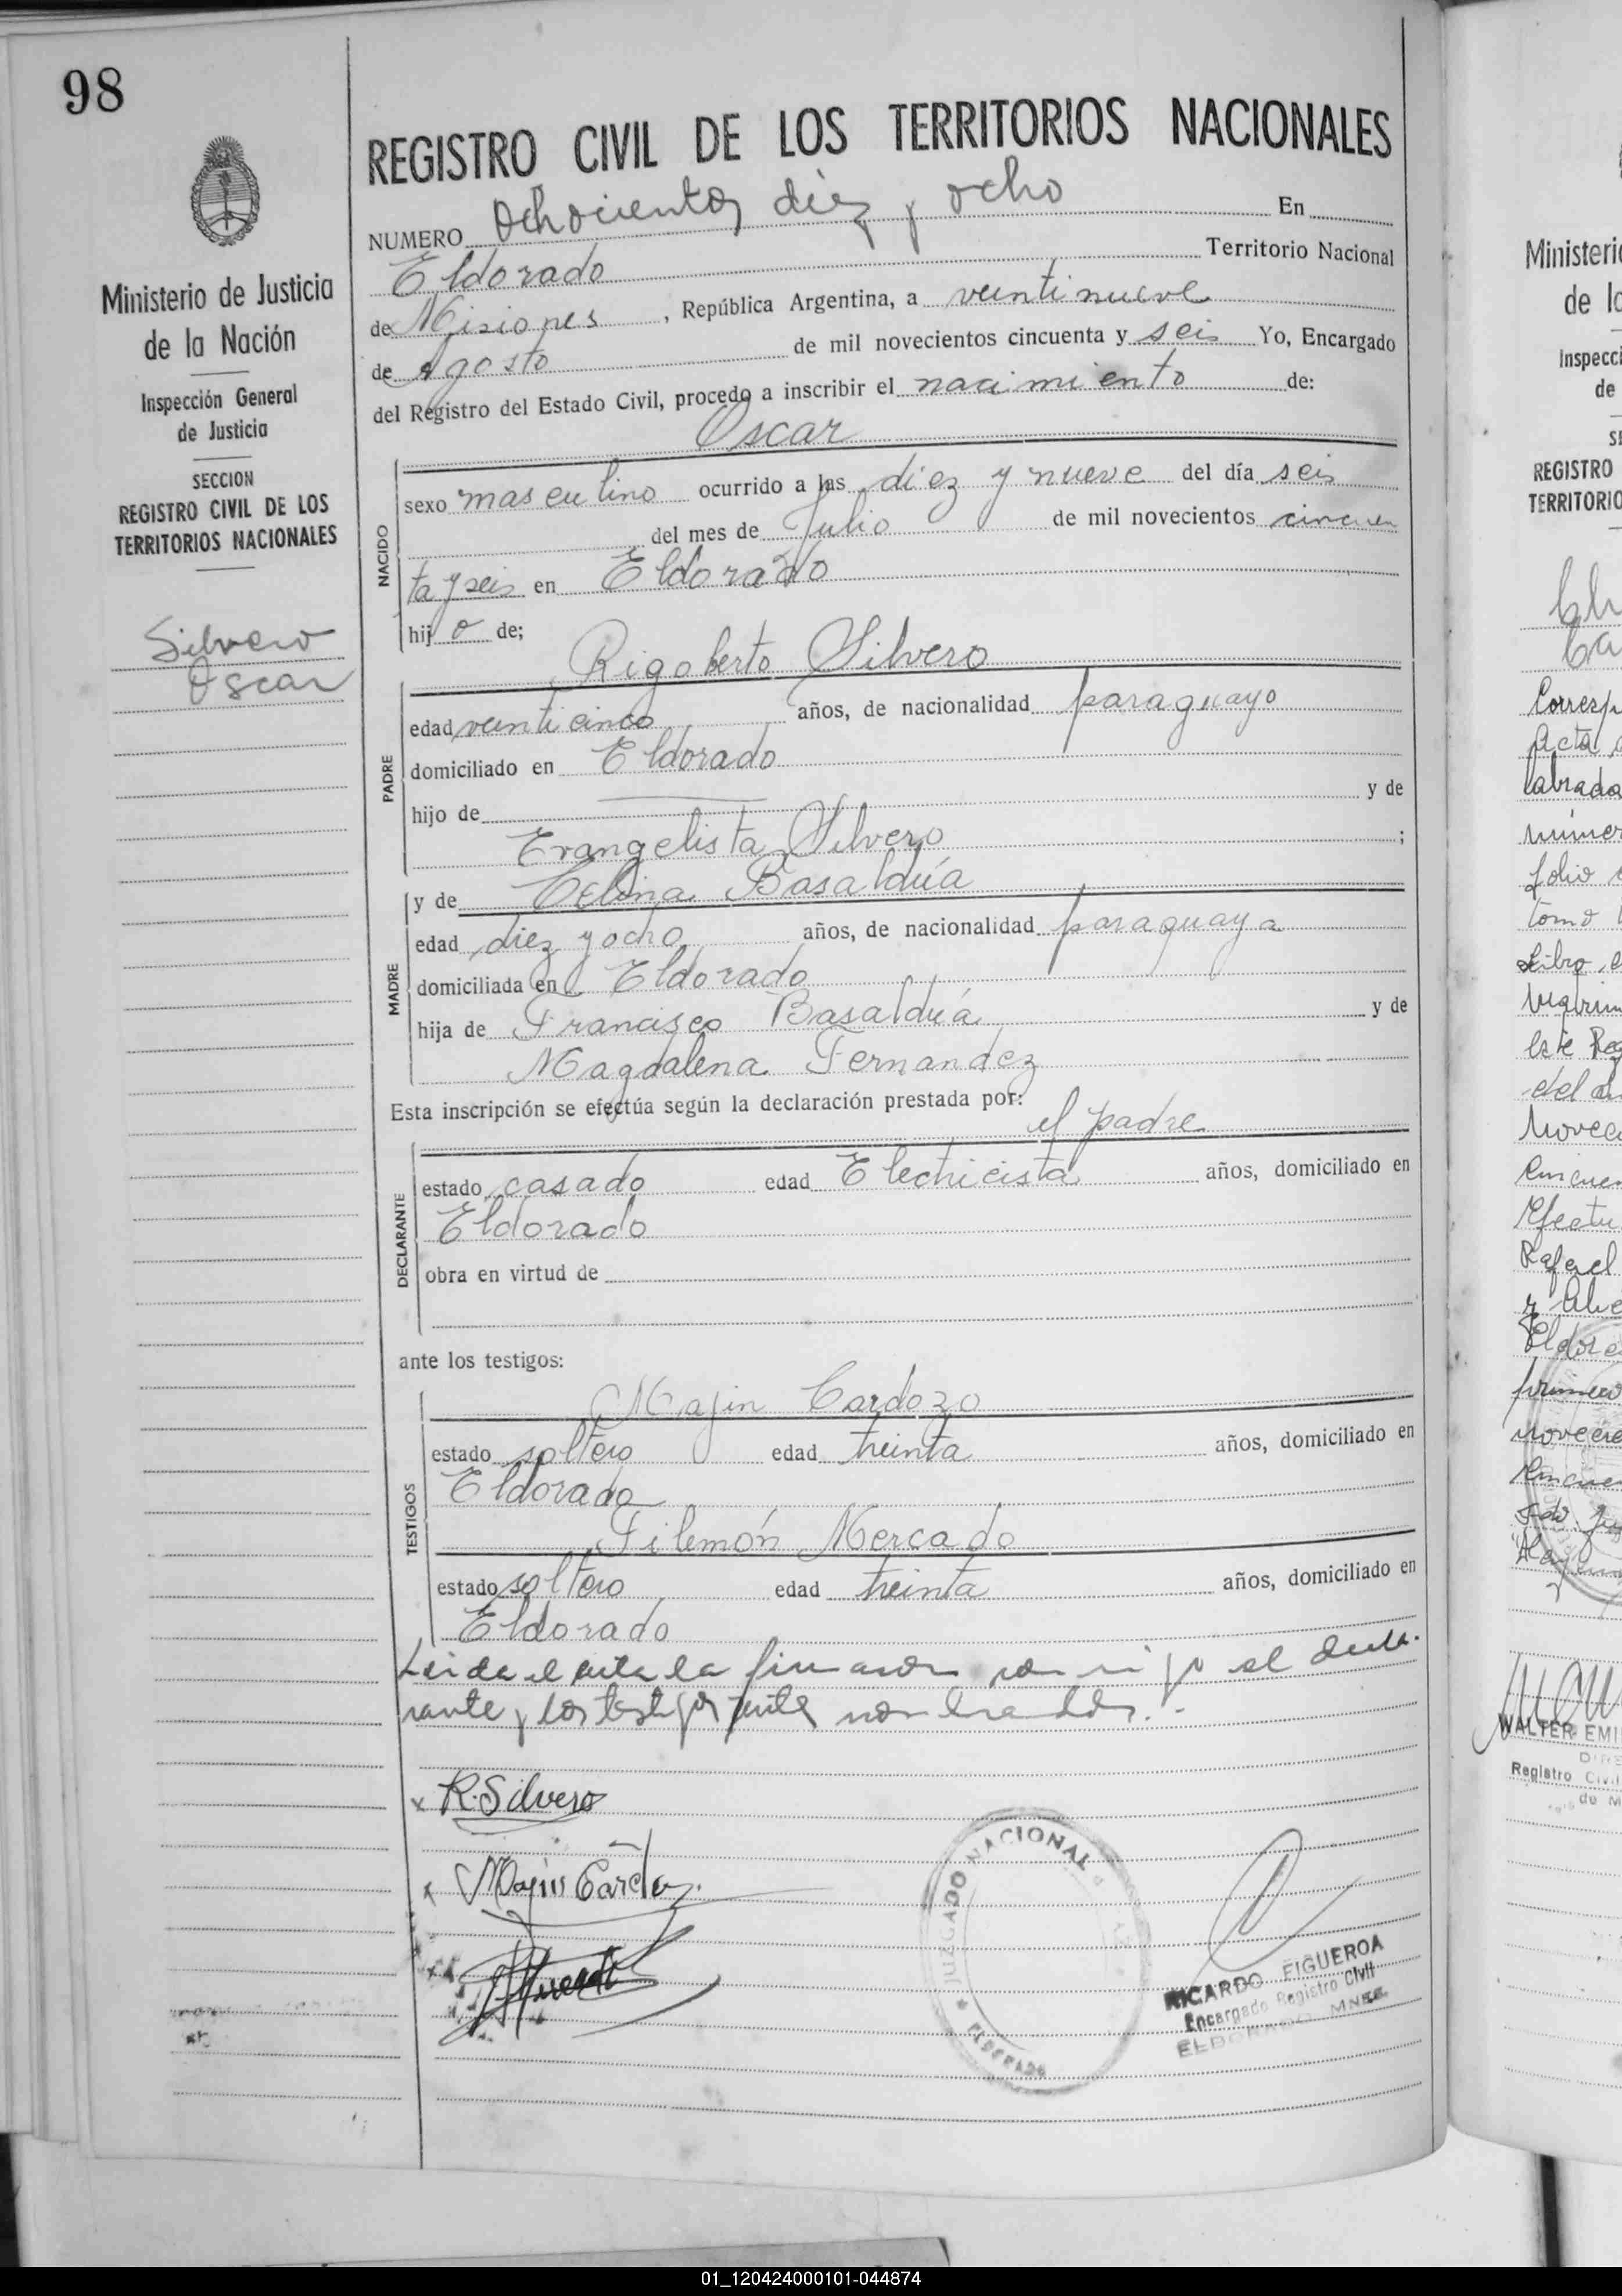 98
Ministerio de Justicia
de la Nación
Inspección General
de Justicia
SECCION
REGISTRO CIVIL DE LOS
TERRITORIOS NACIONALES
Silvero
Oscar
REGISTRO CIVIL DE LOS TERRITORIOS NACIONALES
NUMERO Ochocientos diez y ocho En
Eldorado Territorio Nacional
de Misiones, República Argentina, a veintinueve
de Agosto de mil novecientos cincuenta y seis Yo, Encargado
del Registro del Estado Civil, procedo a inscribir el nacimiento de:
Oscar
NACIDO
sexo masculino ocurrido a las diez y nueve del día seis
del mes de Julio de mil novecientos cincuen
ta y seis en Eldorado
hijo de;
Rigoberto Silvero
PADRE
edad veinticinco años, de nacionalidad paraguayo
domiciliado en Eldorado
hijo de y de
Evangelista Silvero ;
y de Celina Basaldúa
MADRE
edad diez y ocho años, de nacionalidad paraguaya
domiciliada en Eldorado
hija de Francisco Basaldúa y de
Magdalena Fernandez
Esta inscripción se efectúa según la declaración prestada por:
el padre
DECLARANTE
estado casado edad Electricista años, domiciliado en
Eldorado
obra en virtud de
ante los testigos:
TESTIGOS
Majin Cardozo
estado soltero edad treinta años, domiciliado en
Eldorado
Filemón Mercado
estado soltero edad treinta años, domiciliado en
Eldorado
Leida el acta la firmaron conmigo el decla-
rante y los testigos antes nombrados.-
x R. Silvero
x Majin Cardozo
JUZGADO NACIONAL
ELDORADO
RICARDO FIGUEROA
Encargado Registro Civil
ELDORADO MNES.
Ministerio
de la
Inspecci
de
REGISTRO
TERRITORIO
Corresp
Acta
labrada
número
folio
tomo
Libro
este Reg
del
Novec
Efectu
Rafael
WALTER EMI
Registro Civil
de M
01_120424000101-044874